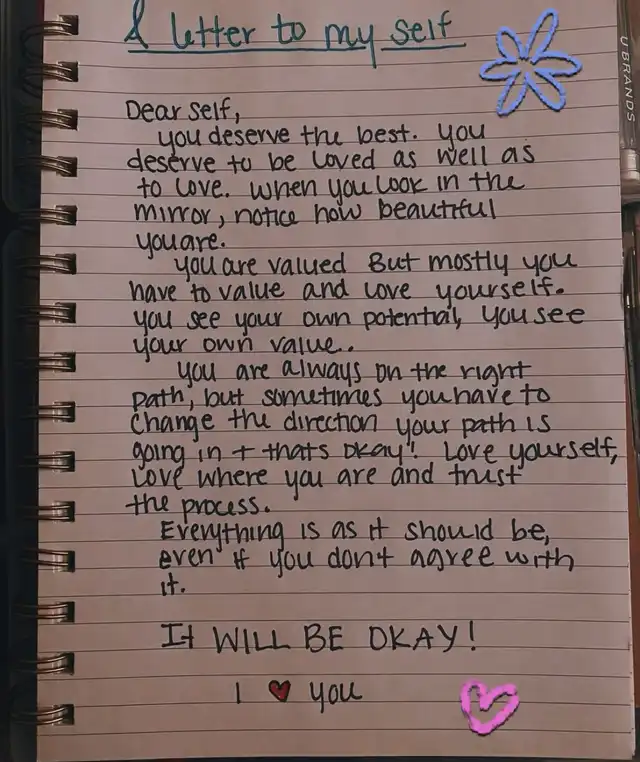 A letter to my self
UBRANDS
Dear self,
you deserve the best. you
deserve to be loved as well as
to love. when you look in the
mirror, notice how beautiful
you are.
you are valued But mostly you
have to value and love yourself.
you see your own potential, you see
your own value.
you are always on the right
path, but sometimes you have to
change the direction your path is
going in + thats okay! Love yourself,
Love where you are and trust
the process.
Everything is as it should be,
even if you dont agree with
it.
It WILL BE OKAY!
I ♥ you